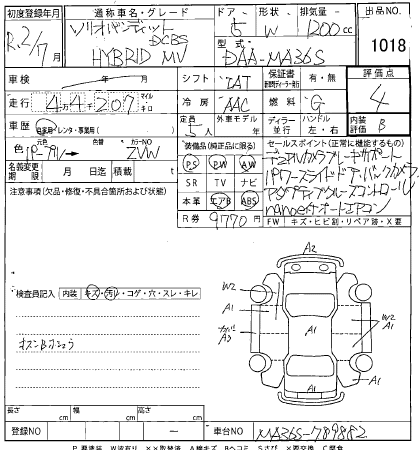 初度登録年月 通称車名・グレード ドア・形状 排気量 出品NO
R.2/7月 ソリオバンディット DCBS 5 W 1200cc 1018
HYBRID MV 型式 DAA-MA36S
車検 年 月 シフト IAT 保証書 有・無 評価点
走行 44,207 マイル キロ 冷房 AAC 燃料 G 4
車歴 自家用・レンタ・事業用( ) 定員 5人 外車モデル ディーラー 並行 ハンドル 左・右 内装評価 B
色 元色 パープル 色替 カラーNO ZVW 装備品(純正品に限る) セールスポイント(正常に機能するもの)
名義変更期限 月 日迄 積載 PS PW AW デュアルカメラブレーキサポート
注意事項(欠品・修復・不具合箇所および状態) SR TV ナビ パワースライドドア・バックカメラ
本革 エアB ABS アダプティブクルーズコントロール
R券 9770円 nanoeオートエアコン
FW キズ・ヒビ割・リペア跡・X要
A2
検査員記入 内装 キズ・汚レ・コゲ・穴・スレ・キレ
W2
A1
A1
W2
A1
A3
A1
A1
長さ cm 幅 cm 高さ cm
登録NO 車台NO MA36S-789882
P要塗装 W波有り ××取替済 A線キズ Bヘコミ Sさび ×要交換 C腐食